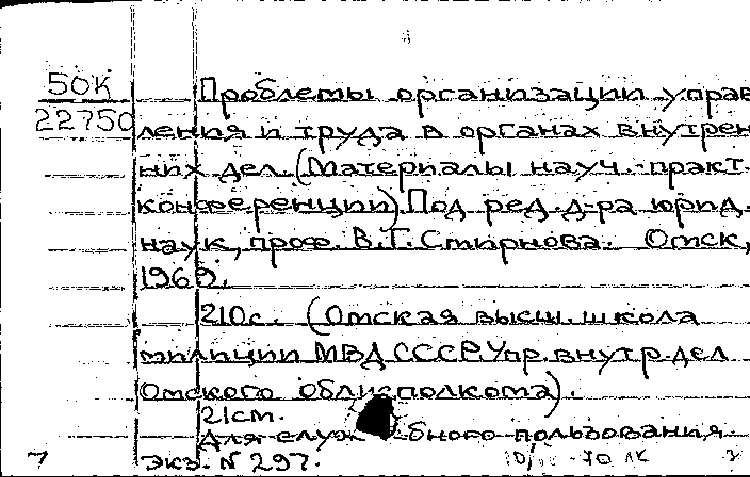 50К
22750
Проблемы организации управ
ления и труда в органах внутрен
них дел. (Материалы науч.-практ.
конференции). Под ред. д-ра юрид.
наук, проф. В.Г. Смирнова. Омск,
1969.
210с. (Омская высш. школа
милиции МВД СССР. Упр. внутр. дел
Омского облисполкома).
21см.
Для служебного пользования.
Экз. N 297.